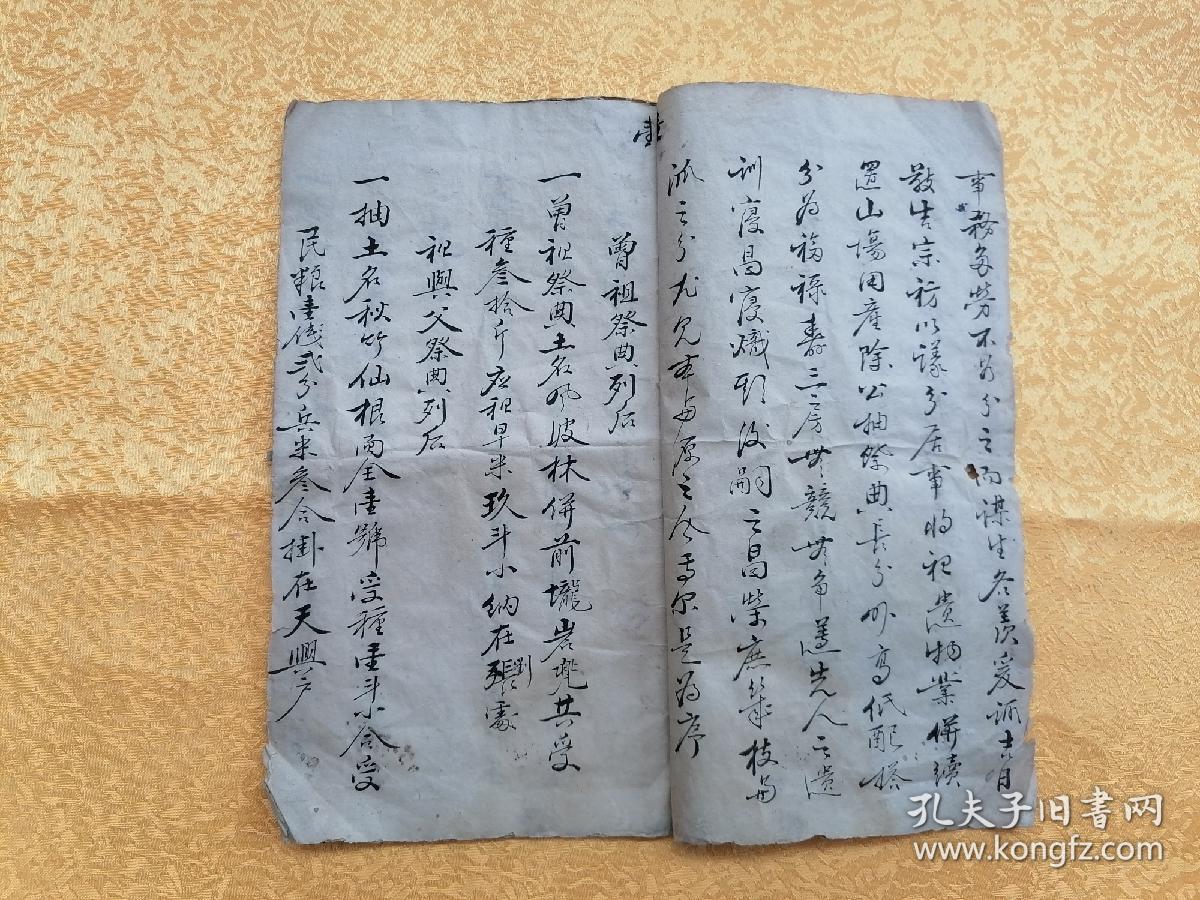 事務多勞不易分之而謀生各羨爰諏吉月
敬告宗祊以議分居事將祀遺物業併續
置山場田產除公抽祭典長分外高低配搭
分為福祿壽三房無競無爭遵先人之遺
訓寖昌寖熾期後嗣之昌榮庶幾枝與
派之分尤見本與源之合焉爾是為序
曾祖祭典列后
一曾祖祭典土名風坡林併前壠岩兜共受
種叁拾斤應租早米玖斗小納在劉張處
祀與父祭典列后
一抽土名秋竹仙根兩仝壹號受種壹斗小合受
民粮壹錢弍分兵米叁合掛在天興户
孔夫子旧书网
www.kongfz.com